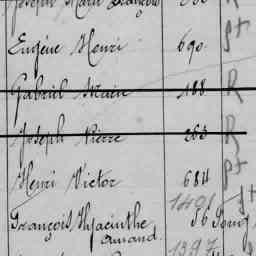 Joseph Marie François
Eugéne Henri 690 pt
Gabriel Marie 488 R
Joseph Pierre 263 R
Henri Victor 684 pt
1491
François Hyacinthe 56
Armand 1397